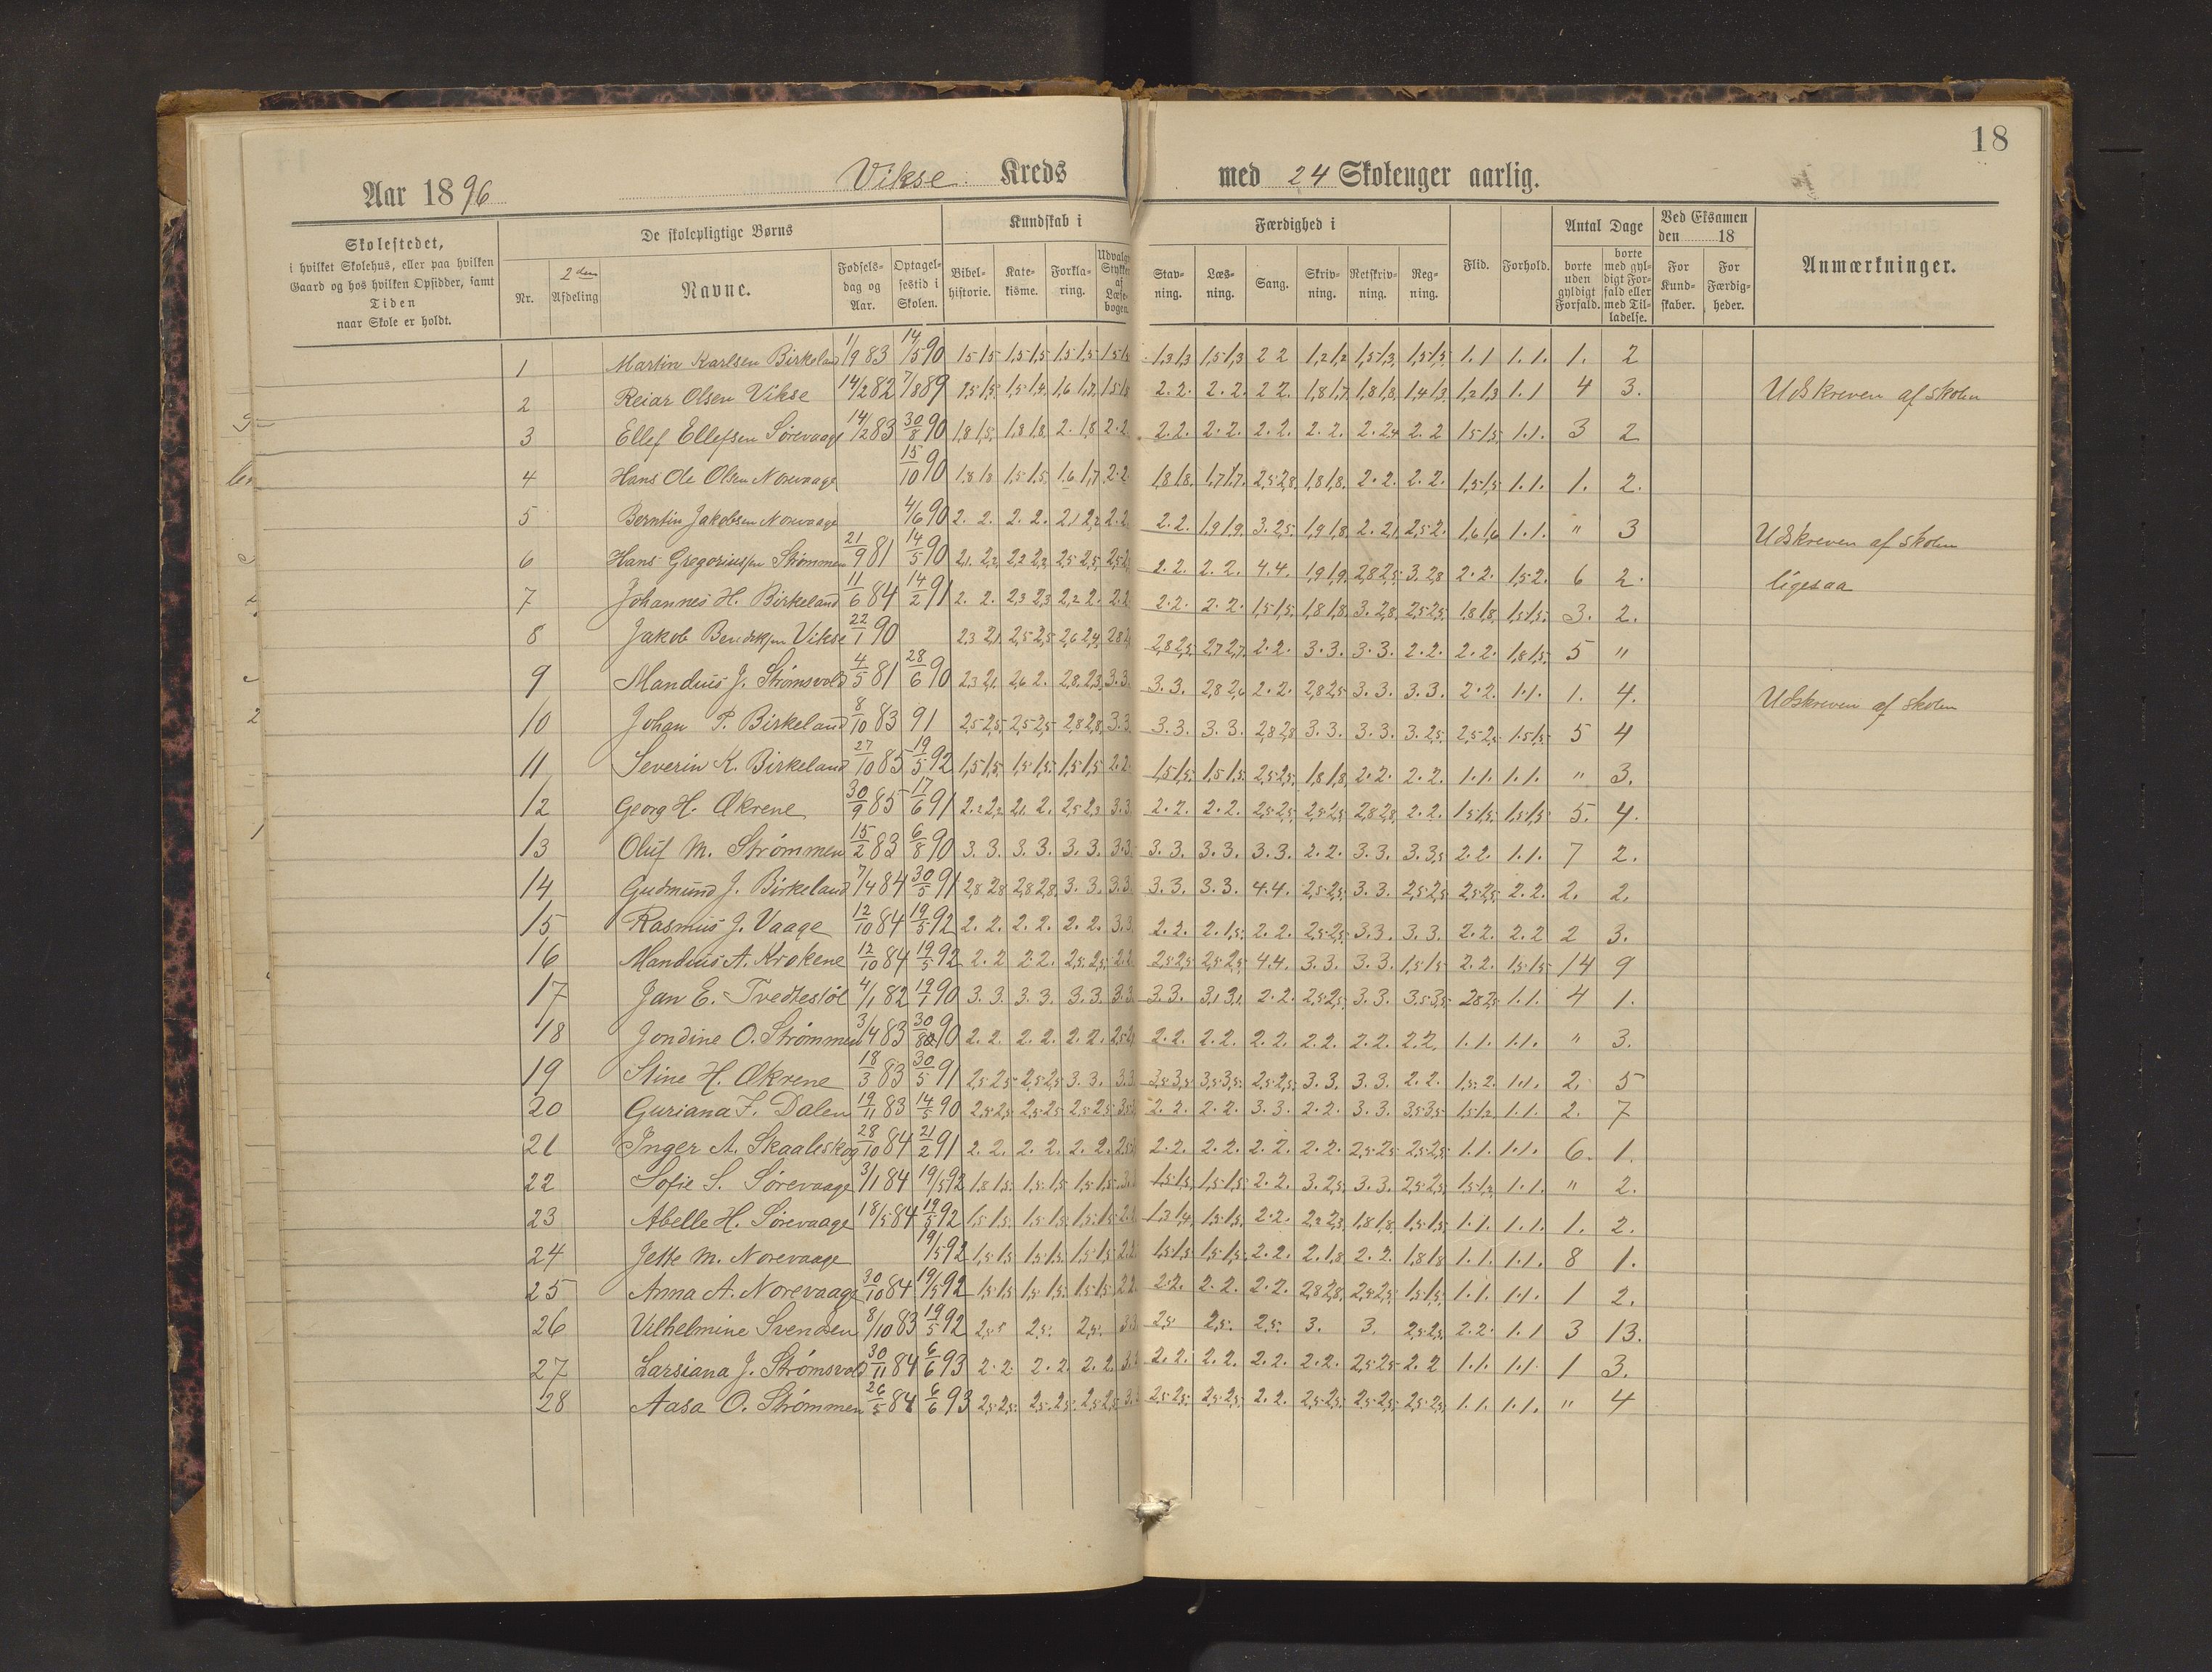 18
Aar 1896 Vikse Kreds med 24 Skoleuger aarlig.
Skolestedet,
i hvilket Skolehus, eller paa hvilken
Gaard og hos hvilken Opsidder, samt
Tiden
naar Skole er holdt.
De skolepligtige Børns
Nr.
2den Afdeling
Navne.
Fødsels-dag og Aar.
Optagel-sestid i Skolen.
Kundskab i
Bibel-historie.
Kate-kisme.
Forkla-ring.
Udvalgte Stykker af Læse-bogen.
Færdighed i
Stav-ning.
Læs-ning.
Sang.
Skriv-ning.
Retskriv-ning.
Reg-ning.
Flid.
Forhold.
Antal Dage
borte uden gyldigt Forfald.
borte med gyl-digt For-fald eller med Til-ladelse.
Ved Eksamen
den 18
For Kund-skaber.
For Færdig-heder.
Anmærkninger.
1 Martin Karlsen Birkeland 1/9 83 14/5 90 1,5 1,5 1,5 1,5 1,5 1,5 1,3 1,3 1,5 1,3 2 2 1,2 1,2 1,5 1,3 1,5 1,5 1. 1 1. 1. 1. 2
2 Reiar Olsen Vikse 14/2 82 7/8 89 1,5 1,5 1,5 1,4 1,6 1,7 2. 2. 2. 2. 2 2. 1,8 1,7 1,8 1,8 1,4 1,3 1,2 1,3 1. 1 4 3. Udskreven af skolen
3 Ellef Ellefsen Sørevaage 14/2 83 30/8 90 1,8 1,8 1,8 1,8 2. 1,8 2. 2. 2. 2. 2. 2. 2. 2. 2. 2. 2. 2,4 2. 2 1,5 1,5 1. 1. 3 2
4 Hans Ole Olsen Norevaage 15/10 90 1,8 1,8 1,5 1,5 1,6 1,7 2. 2 1,8 1,8 1,7 1,7 2,5 2,8 1,8 1,8 2. 2. 2. 2. 1,5 1,5 1. 1. 1. 2.
5 Berntin Jakobsen Norevaage 4/6 90 2. 2. 2. 2. 2,1 2,2 2. 2. 2. 2. 1,9 1,9 3. 2,5 1,9 1,8 2. 2,1 2,5 2. 1,6 1,6 1. 1. " 3 Udskreven af skolen
6 Hans Gregoriussen Strømmen 21/9 81 14/5 90 2,1 2,2 2,2 2,2 2,5 2,5 2. 2. 2. 2. 4. 4. 1,9 1,9 2,8 2,5 3. 2,8 2. 2. 1,5 2. 6 2. ligesaa
7 Johannes H. Birkeland 11/6 84 14/2 91 2. 2. 2,3 2,3 2,2 2. 2. 2. 2. 2. 2. 2. 1,5 1,5 1,8 1,8 3. 2,8 2,5 2,5 1,8 1,8 1,5 1,5 3. 2.
8 Jakob Bendiksen Vikse 22/1 90 2,3 2,1 2,5 2,5 2,6 2,4 2,8 2,5 2,7 2,7 2. 2. 3. 3. 3. 3. 2. 2. 2. 2. 1,8 1,5 5 "
9 Mandius J. Strømsvold 4/5 81 28/6 90 2,3 2,1 2,6 2. 2,8 2,3 3. 3. 3. 3. 2,8 2,6 2. 2. 2,8 2,5 3. 3. 3. 3. 2. 2. 1. 1. 1. 4. Udskreven af skolen
10 Johan P. Birkeland 8/10 83 91 2,5 2,5 2,5 2,5 2,8 2,8 3. 3 3. 3. 3. 3. 2,8 2,8 3. 3. 3. 3. 3. 2,5 2,5 2,5 1,5 1,5 5 4
11 Severin K. Birkeland 27/10 83 19/5 92 1,5 1,5 1,5 1,5 1,5 1,5 2. 2. 1,5 1,5 1,5 1,5 2,5 2,5 1,8 1,8 2. 2. 2. 2. 1. 1. 1. 1. " 3.
12 Georg H. Økrene 30/9 85 17/6 91 2,2 2,2 2,1 2. 2,5 2,3 3. 3. 2. 2. 2. 2. 2,5 2,5 2,5 2,5 2,8 2,8 2. 2. 1,5 1,5 1,5 1,5 5. 4.
13 Oluf M. Strømmen 15/2 83 6/8 90 3. 3. 3. 3. 3. 3. 3. 3. 3. 3. 3. 3. 3. 3. 2. 2. 3. 3. 3. 3,5 2. 2. 1. 1. 7 2.
14 Gudmund J. Birkeland 7/4 84 30/5 91 2,8 2,8 2,8 2,8 3. 3. 3. 3. 3. 3. 3. 3. 4. 4. 2,5 2,5 3. 3. 2,5 2,5 2,5 2,5 2. 2. 2. 2.
15 Rasmus J. Vaage 12/10 84 19/5 92 2. 2. 2. 2. 2. 2. 3. 3. 2. 2. 2. 1,5 2. 2. 2,5 2,5 3. 3. 3. 3. 2. 2. 2. 2 2 3.
16 Mandius A. Krokene 12/10 84 19/5 92 2. 2 2. 2. 2,5 2,5 2. 2. 2,5 2,5 2,5 2,5 4. 4. 3. 3. 3. 3. 1,5 1,5 2. 2. 1,5 1,5 14 9
17 Jan E. Tvedtesløl 4/1 82 19/1 90 3. 3. 3. 3. 3. 3. 3. 3. 3. 3. 3,1 3,1 2. 2. 2,5 2,5 3. 3. 3,5 3,5 2,8 2,5 1. 1. 4 1.
18 Jondine O. Strømmen 3/4 83 30/8 90 2. 2. 2. 2. 2. 2. 2. 2. 2. 2. 2. 2. 2. 2. 2. 2. 2. 2. 1. 1. 1. 1. " 3.
19 Stine H. Økrene 18/3 83 30/5 91 2,5 2,5 2,5 2,5 3. 3. 3. 3 3,5 3,5 3,5 3,5 2,5 2,5 3. 3. 3. 3. 2. 2. 1,5 2. 1. 1. 2. 5
20 Guriana J. Dalen 19/11 83 14/5 90 2,5 2,5 2,5 2,5 2,5 2,5 2. 2. 2. 2. 3. 3. 2. 2. 3. 3. 3,5 3,5 1,5 1,2 1. 1. 2. 7
21 Inger A. Skaaleskog 28/10 84 21/2 91 2. 2. 2. 2. 2. 2. 2. 2. 2. 2. 2. 2. 2. 2. 2,5 2,5 2,5 2,5 1. 1. 1. 1. 6. 1.
22 Sofie S. Sørevaage 3/1 84 19/5 92 1,8 1,5 1,5 1,5 1,5 1,5 1,5 1,5 1,5 1,5 2. 2. 3. 2,5 3. 3. 2,5 2,5 1,5 1,2 1. 1. " 2.
23 Abelle H. Sørevaage 18/5 84 19/5 92 1,5 1,5 1,5 1,5 1,5 1,5 1,3 1,4 1,5 1,5 2. 2. 2,2 2,3 1,8 1,8 1,5 1,5 1. 1. 1. 1. 1. 2.
24 Jette M. Norevaage 19/5 92 1,5 1,5 1,5 1,5 1,5 1,5 2. 2. 1,5 1,5 1,5 1,5 2. 2. 2. 1,8 2. 2. 1,8 1,8 1. 1. 1. 1. 8 1.
25 Anna A. Norevaage 30/10 84 19/5 92 1,5 1,5 1,5 1,5 1,5 1,5 2. 2. 2. 2. 2. 2. 2. 2. 2,8 2,8 2,5 2,5 1,5 1,5 1. 1. 1. 1. 1 2.
26 Vilhelmine Svendsen 8/10 83 19/5 92 2,5 2,5 2,5 3. 3 2,5 2,5 2,5 3. 3. 2,5 2,5 2. 2. 1. 1 3 13.
27 Larsiana J. Strømsvold 30/11 84 6/6 93 2. 2. 2. 2. 2. 2. 3. 3 2. 2. 2. 2. 2. 2. 2. 2. 2,5 2,5 2. 2 1. 1. 1. 1. 1 3.
28 Aasa O. Strømmen 26/5 84 6/6 93 2,5 2,5 2,5 2,5 2,5 2,5 3. 3 2,5 2,5 2,5 2,5 2. 2. 2,5 2,5 2,5 2,5 2,5 2,5 1. 1. 1. 1. " 4